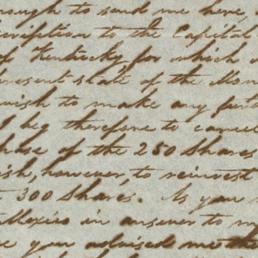 ought to send me here,
to the Capital
of Kentucky for which
present state of the Mon
wish to make any furth
I beg therefore to cancel
chase of the 250 Shares
ish, however, to reinvest
300 Shares. As you
Mexico in answer to m
you advised me the